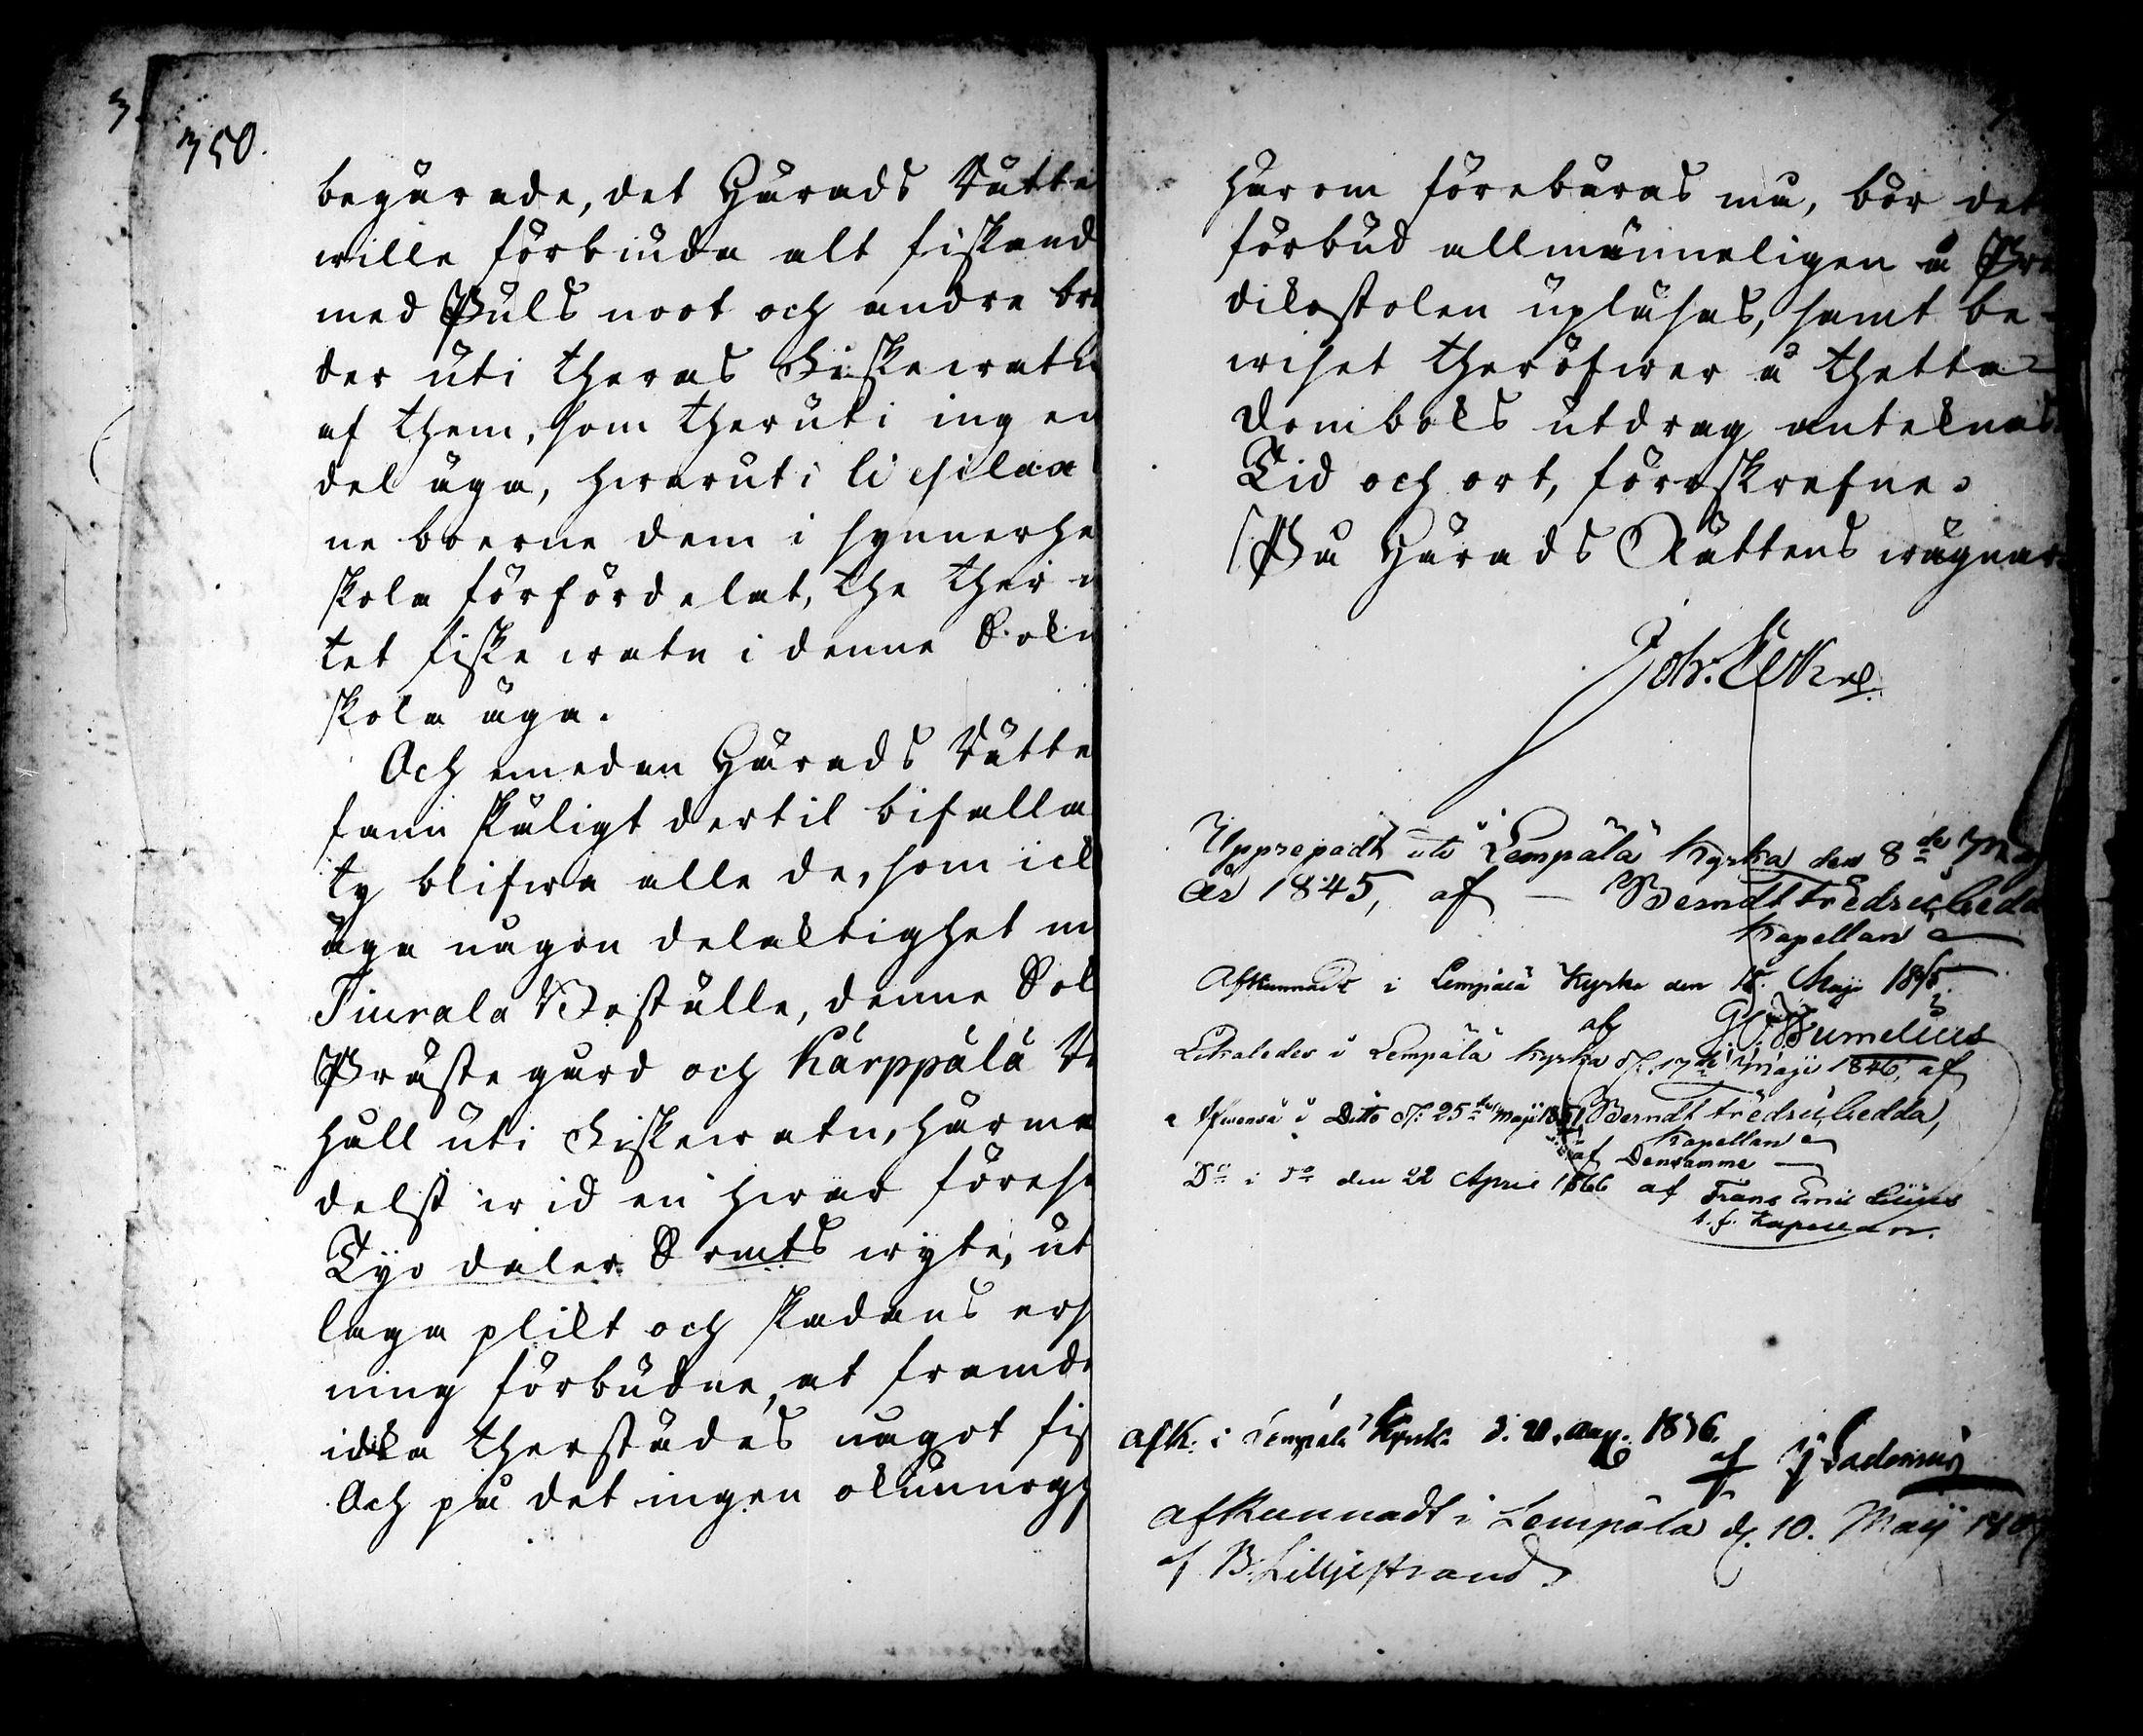 350.
begärade, det Härads Rätte
wille förbiuda alt fiskand
med Puls noot och andra br
der uti theras Fiskewatn
af them, som theruti ingen
del äga, hwaruti
ne boerne dem i synnerhe
skola förfördelat, the ther
tet fiske watn i denne Sokn
skola äga.
Och emedan Härads Rätte
fann skäligt dertil bifalla
ty blifwa alle de, som ick
äga någon delaktighet m
Tiurala Boställe, denne Sok
Prästegård och Kärppälä
håll uti Fiskewatn, härme
delst wid en hwar föresa
Tijo daler S:rmts wyte, ut
laga plikt och skadans ers
ning förbudne, at framd
idka therstädes något fis
Och på det ingen okunnogh
härom förebäras må, bör det
förbud allmänneligen å Pre
dikostolen upläsas, samt be-
wiset theröfwer å thetta
Domboks utdrag anteknas
Tid och ort, förrskrefne.
På Härads Rättens wägnar
Joh:
Upprepadt uti Lempälä Kyrka den 8de Maj
År 1845, af — Berndt Fredric Gedda
Kapellan
Afkunnadt i Lempälä Kyrka den 18. Maji 1845.
af
i Lempälä Kyrka d. 17de Maji 1846, af
Berndt Fredric Gedda,
Kapellan
i Ditto d: 25te Maji 1851
af Densamme —
Do i do den 22 April 1866 af Frans Emil
t.f. Kapellan.
Afk. i Lempälä Kyrka d. Aug. 1856.
af
Afkunnadt i Lempälä d. 10. Maij
af B. Lilljestrand